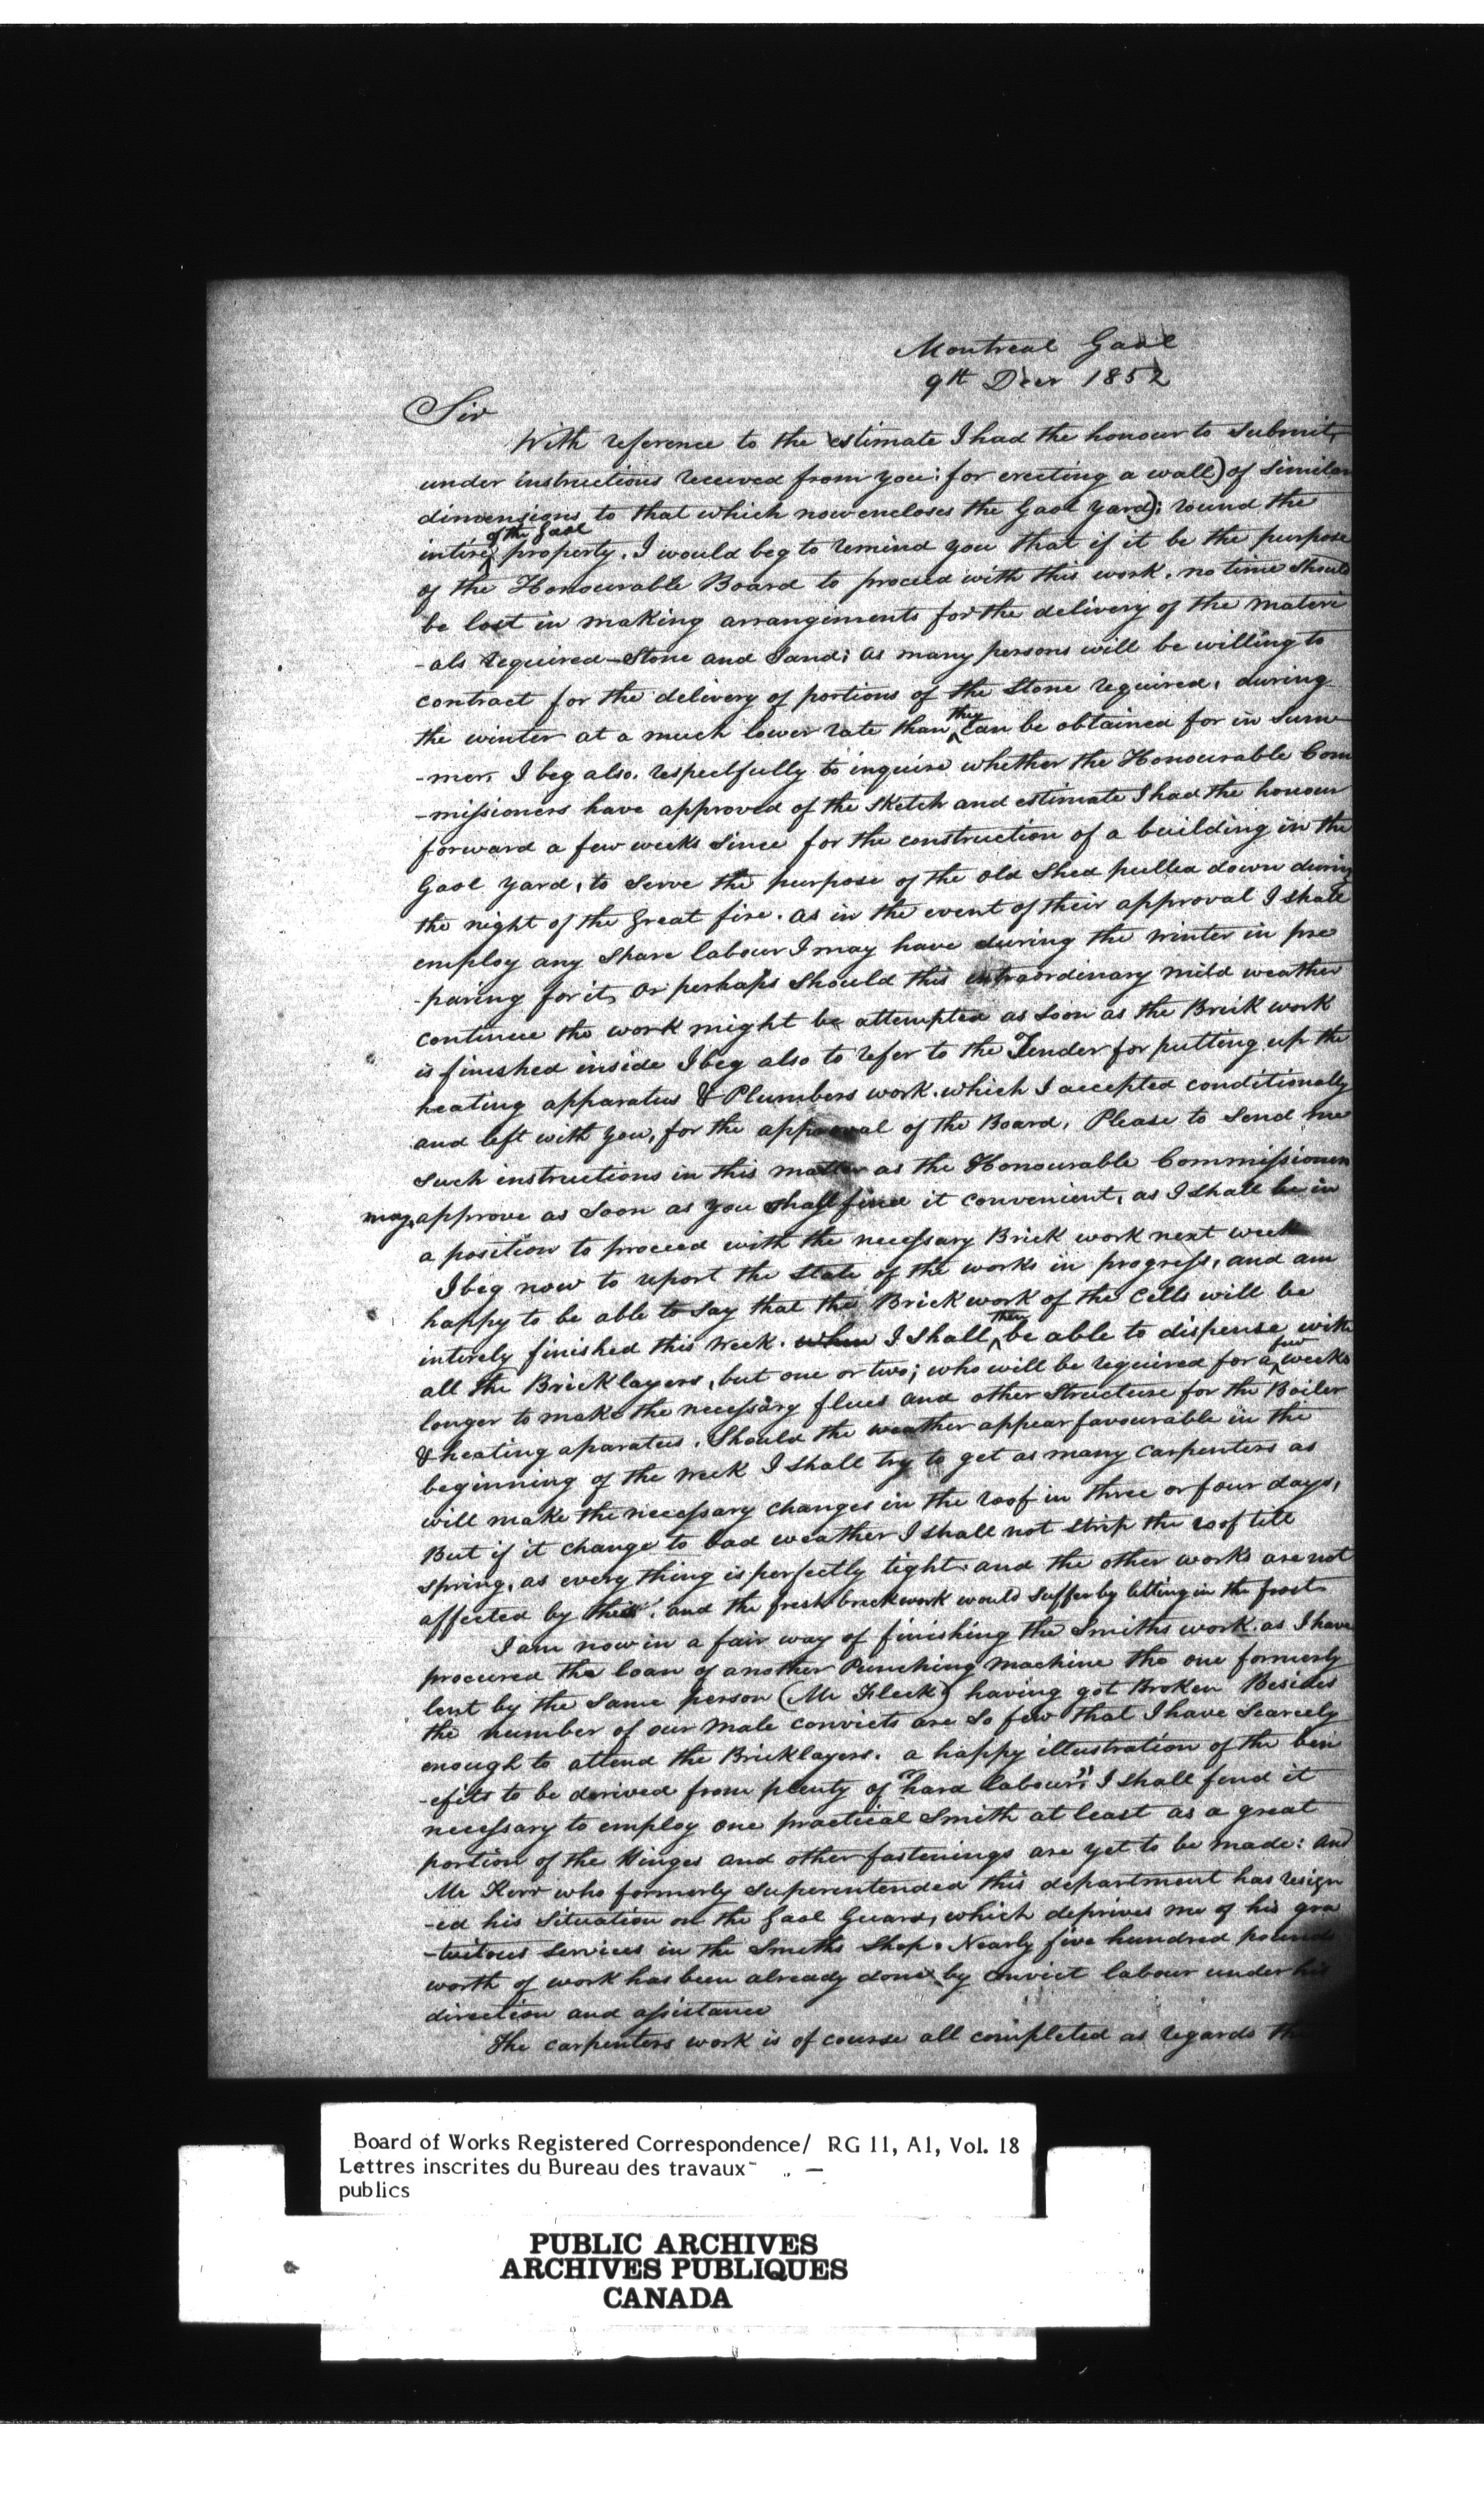 Montreal Gaol
9th Decr 1852
Sir
With reference to the estimate I had the honour to submit,
under instructions received from you: for erecting a wall) of similar
dimensions to that which now encloses the Gaol yard): round the
intire of the Gaol property. I would beg to remind you that if it be the purpose
of the Honourable Board to proceed with this work, no time should
be lost in making arrangements for the delivery of the materi
-als required - Stone and Sand; as many persons will be willing to
contract for the delivery of portions of the Stone required, during
the winter at a much lower rate than they can be obtained for in Sum
-mer. I beg also, respectfully to inquire whether the Honourable Com
-missioners have approved of the Sketch and estimate I had the honour
forward a few weeks since for the construction of a building in the
Gaol yard, to serve the purpose of the old Shed pulled down during
the night of the great fire. as in the event of their approval I shall
employ any spare labour I may have during the winter in pre
-paring for it, or perhaps should this extraordinary mild weather
continue the work might be attempted as soon as the Brick work
is finished inside I beg also to refer to the Tender for putting up the
heating apparatus & Plumbers work. which I accepted conditionally
and left with you, for the approval of the Board, Please to send me
such instructions in this matter as the Honourable Commissioners
may approve as soon as you shall find it convenient, as I shall be in
a position to proceed with the necessary Brick work next week
I beg now to report the State of the works in progress, and am
happy to be able to say that the Brick work of the Cells will be
intirely finished this week. when I shall then be able to dispense with
all the Bricklayers, but one or two; who will be required for a few weeks
longer to make the necessary flues and other Structure for the Boiler
& heating aparatus. Should the weather appear favourable in the
beginning of the week I shall try to get as many Carpenters as
will make the necessary changes in the roof in three or four days,
But if it change to bad weather I shall not strip the roof till
spring, as every thing is perfectly tight. and the other works are not
affected by this. and the fresh brickwork would suffer by letting in the frost
I am now in a fair way of finishing the Smiths work. as I have
procured the loan of another Punching Machine the one formerly
lent by the same person (Mr Fleck) having got Broken Besides
the number of our male convicts are so few that I have scarcely
enough to attend the Bricklayers. a happy illustration of the ben
-efits to be derived from plenty of "hard labour". I shall find it
necessary to employ one practical Smith at least as a great
portion of the Hinges and other fastenings are yet to be made: and
Mr Kerr who formerly superentended this department has resign
-ed his situation on the Gaol Guard, which deprives me of his gra
-tuitous services in the Smiths Shop. Nearly five hundred pounds
worth of work has been already done by convict labour under his
direction and assistance
The carpenters work is of course all completed as regards the
Board of Works Registered Correspondence/ RG 11, A1, Vol. 18
Lettres inscrites du Bureau des travaux
publics
PUBLIC ARCHIVES
ARCHIVES PUBLIQUES
CANADA